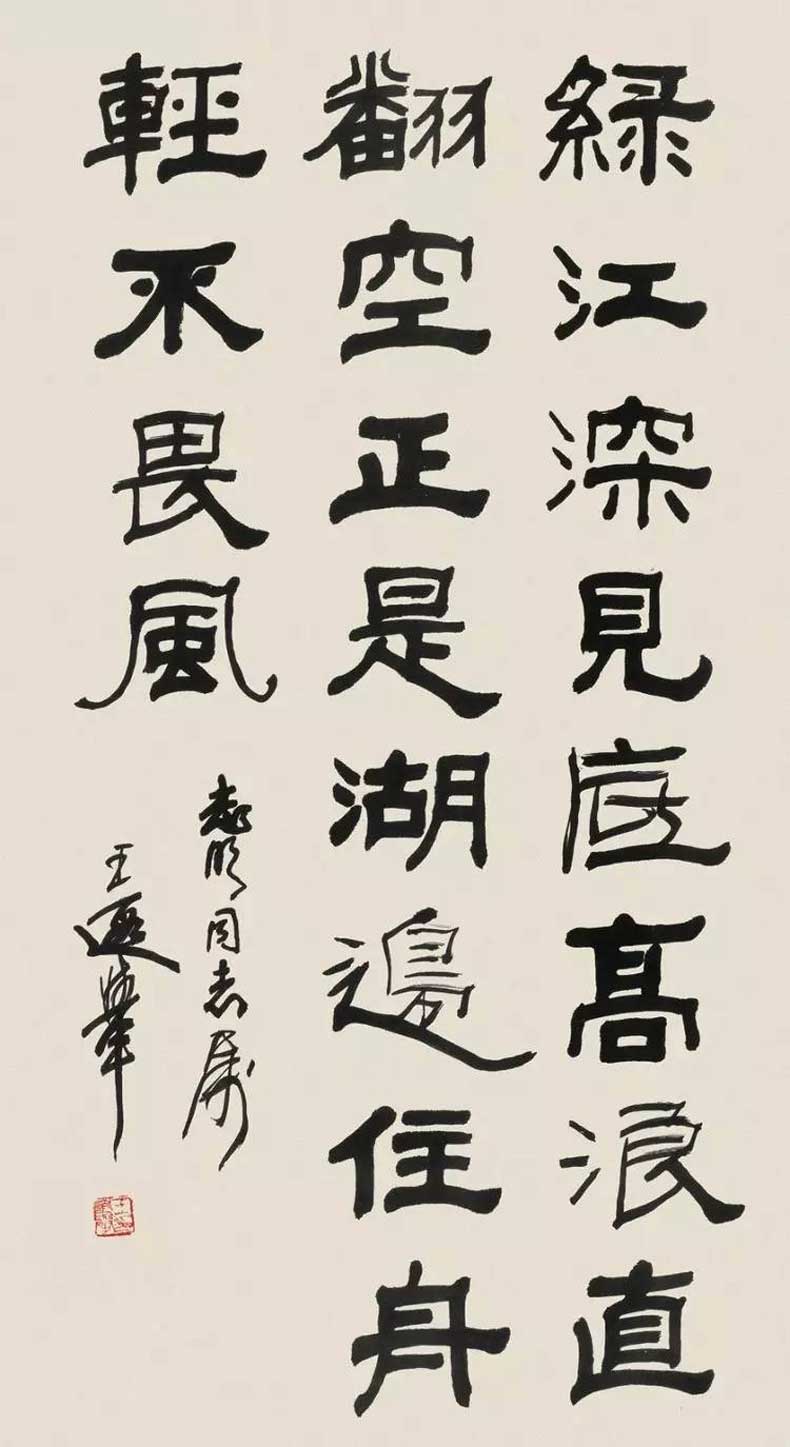 緑江深見底高浪直
翻空正是湖邊住舟
輕不畏風
明同志屬
王遐舉